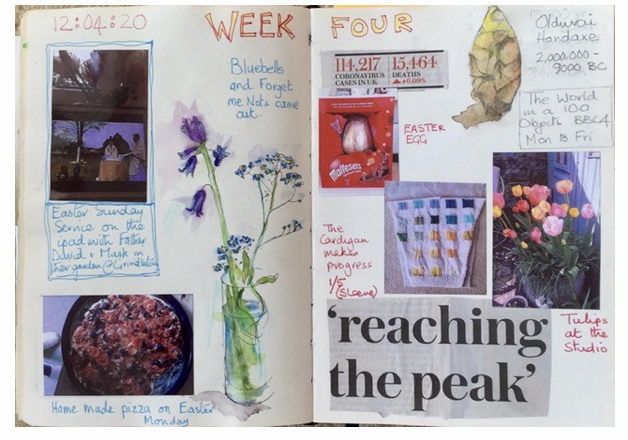 12:04:20
WEEK
Bluebells
and Forget
me Nots came
out.
Easter Sunday
Service on the
ipad with Father
David + Mark in
their garden@Grindleton
Home made pizza on Easter
Monday
FOUR
114,217
CORONAVIRUS
CASES IN UK
15,464
DEATHS
+6.09%
EASTER
EGG
Maltesers
Olduvai
Handaxe
2,000,000-
9000 BC
The World
in a 100
Objects BBC4
Mon to Fri
The
Cardigan
makes
progress
1/5
(Sleeve)
'reaching
the peak'
Tulips
at the
Studio